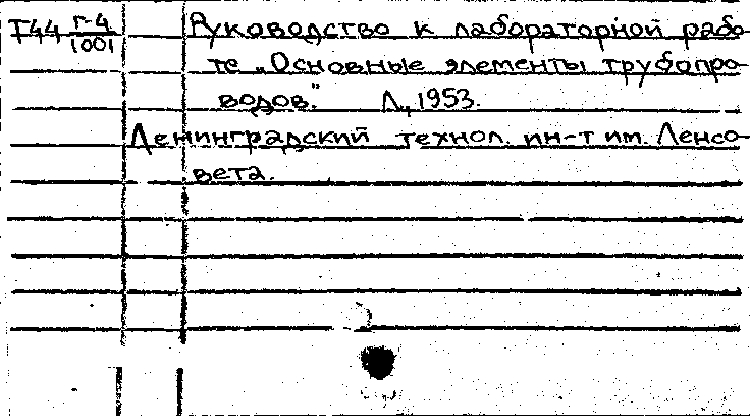 Т44 Г-4/1001 Руководство к лабораторной рабо-
те „Основные элементы трубопро-
водов." Л., 1953.
Ленинградский технол. ин-т им. Ленсо-
вета.